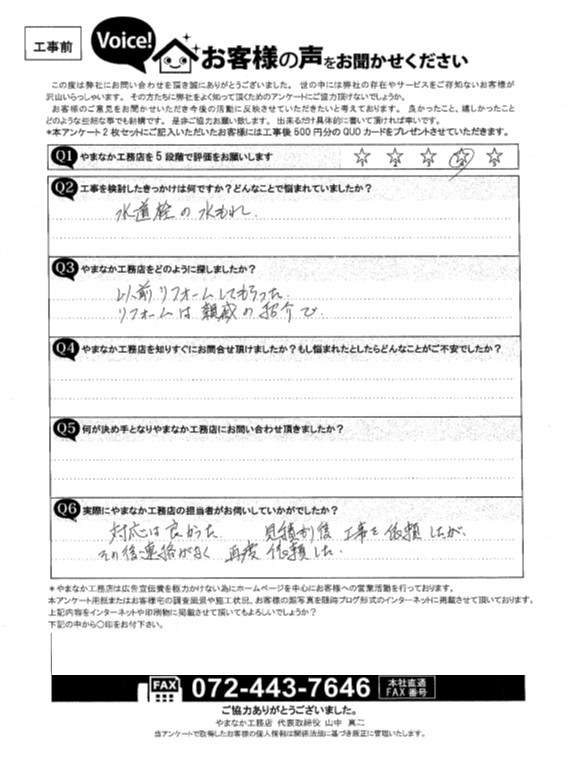 工事前
Voice!
お客様の声をお聞かせください
この度は弊社にお問い合わせを頂き誠にありがとうございました。世の中には弊社の存在やサービスをご存知ないお客様が
沢山いらっしゃいます。その方たちに弊社をよく知って頂くためのアンケートにご協力頂けないでしょうか。
お客様のご意見をお聞かせいただき今後の活動に反映させていただきたいと考えております。良かったこと、嬉しかったこと
どのような些細な事でも結構です。是非ご協力お願い致します。出来るだけ具体的に書いて頂ければ幸いです。
*本アンケート2枚セットにご記入いただいたお客様には工事後500円分のQUOカードをプレゼントさせていただきます。
Q1 やまなか工務店を5段階で評価をお願いします
1 2 3 4 5
Q2 工事を検討したきっかけは何ですか?どんなことで悩まれていましたか?
水道栓の水もれ.
Q3 やまなか工務店をどのように探しましたか?
以前リフォームしてもらった.
リフォームは親戚の紹介で
Q4 やまなか工務店を知りすぐにお問合せ頂けましたか?もし悩まれたとしたらどんなことがご不安でしたか?
Q5 何が決め手となりやまなか工務店にお問い合わせ頂きましたか?
Q6 実際にやまなか工務店の担当者がお伺いしていかがでしたか?
対応は良かった 見積り後 工事を依頼したが、
その後連絡がなく 再度依頼した.
*やまなか工務店は広告宣伝費を極力かけない為にホームページを中心にお客様への営業活動を行っております。
本アンケート用紙またはお客様宅の調査風景や施工状況、お客様の顔写真を随時ブログ形式のインターネットに掲載させて頂いております。
上記内容をインターネットや印刷物に掲載させて頂いてもよろしいでしょうか?
下記の中から〇印をお付下さい。
FAX 072-443-7646 本社直通 FAX番号
ご協力ありがとうございました。
やまなか工務店 代表取締役 山中 真二
当アンケートで取得したお客様の個人情報は関係法法に基づき厳正に管理いたします。